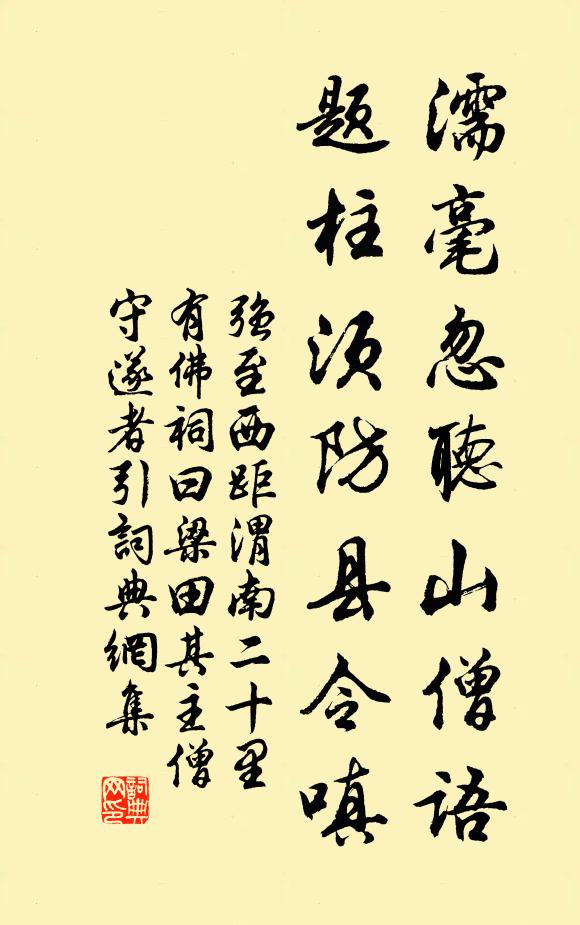 濡毫忽聽山僧語
題柱須防县令嗔
強至西距渭南二十里
有佛祠曰梁田其主僧
守遂者引詞典網集
詞典
网印